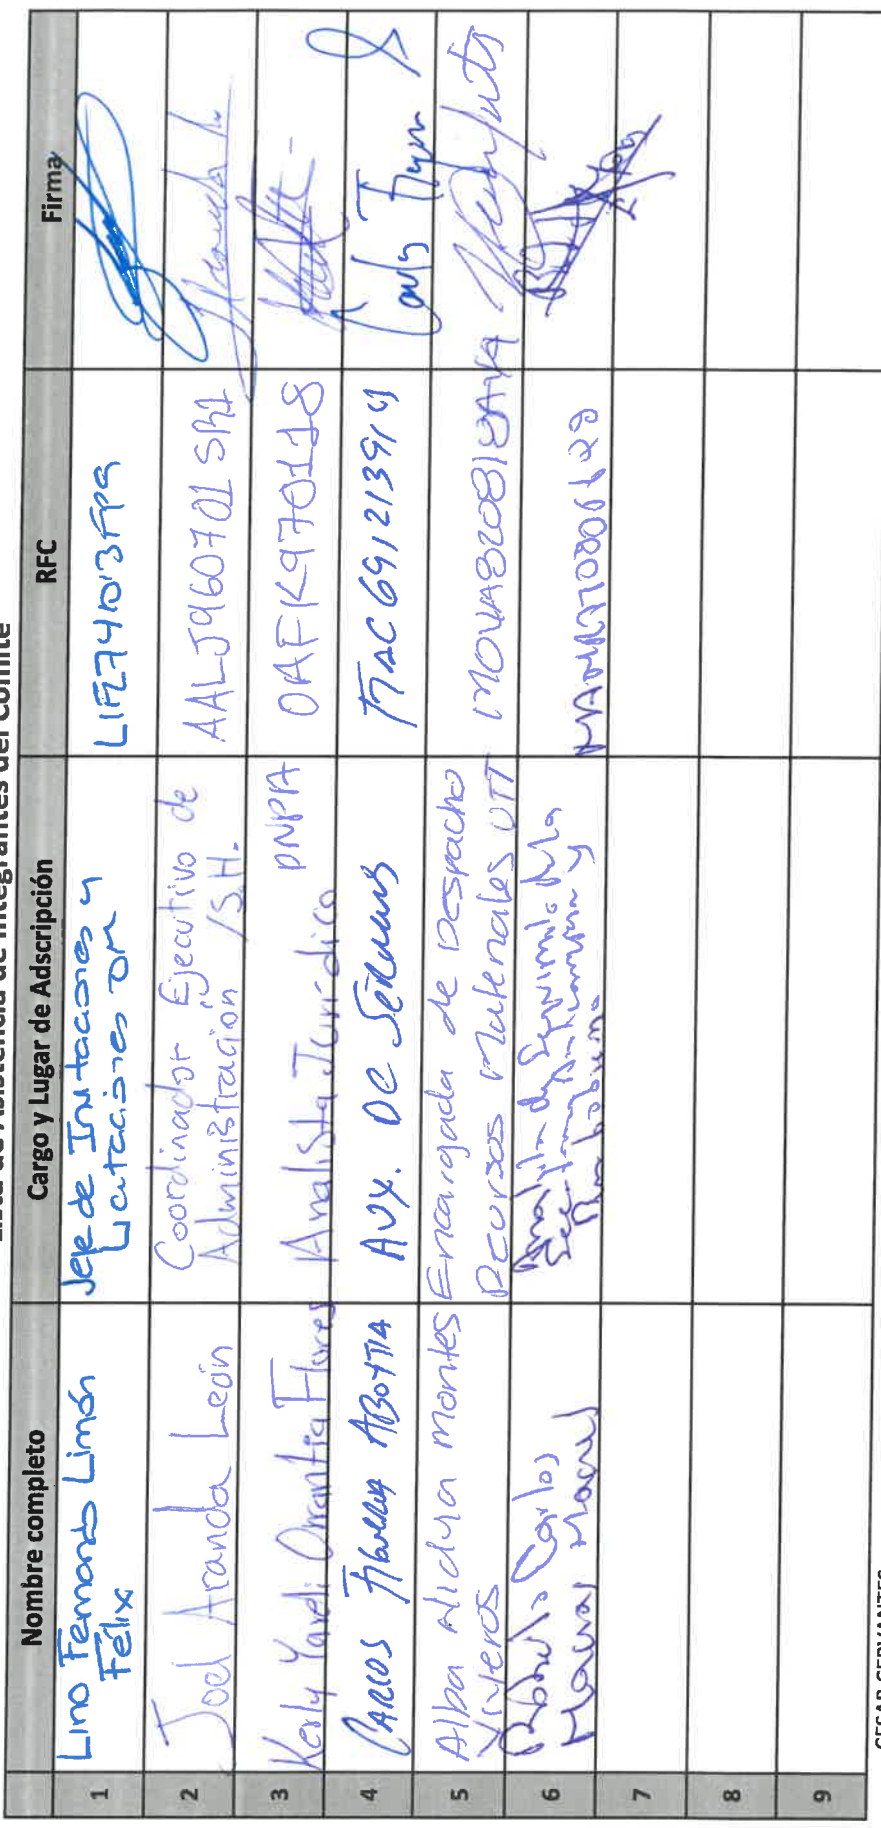 Lista de Asistencia de Integrantes del Comité
Nombre completo Cargo y Lugar de Adscripción RFC Firma
1 Lino Fernando Limón Félix Jefe de Invitaciones y Licitaciones OM
2 Joel Aranda León Coordinador Ejecutivo de Administración /S.H. AALJ960701SR1
3 Kerly Yareli Orrantia Flores Analista Jurídico DNPA OAFK970118
4 CARLOS ABOYTIA AUX. DE
5 Alba Nidya Montes Viveros Encargada de Despacho Recursos Materiales UTT MOVA820818AVA
6 Roberto Carlos Macias
7
8
9
CESAR CERVANTES